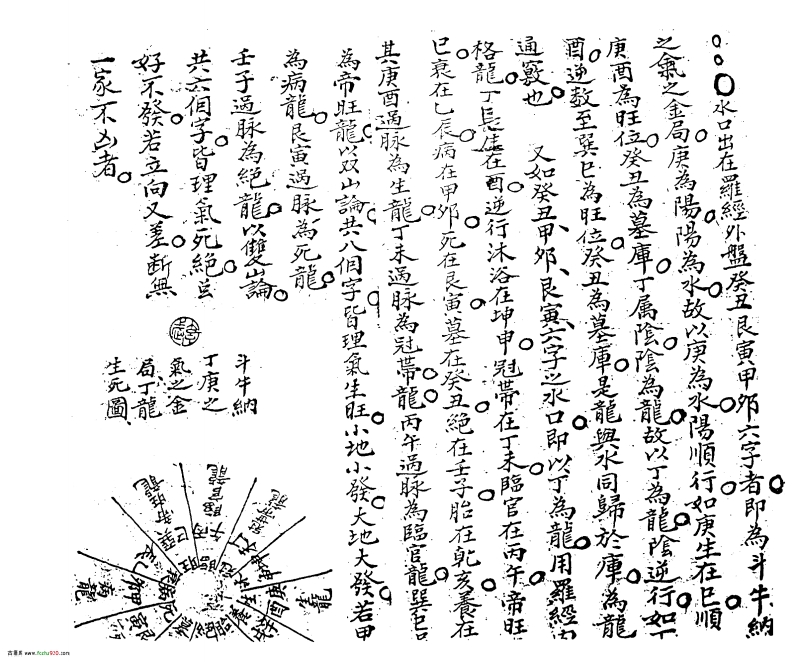 水口出在羅經外盤癸丑艮寅甲卯六字者即為斗牛納
之氣之金局庚為陽陽為水故以庚為水陽順行如庚生在巳順
庚酉為旺位癸丑為墓庫丁属陰陰為龍故以丁為龍陰逆行如丁
酉逆数至巽巳為旺位癸丑為墓庫是龍與水同歸於庫為龍
通竅也 又如癸丑、甲卯、艮寅六字之水口即以丁為龍用羅經内
格龍丁長生在酉逆行沐浴在坤申冠帶在丁未臨官在丙午帝旺
巳衰在乙辰病在甲卯死在艮寅墓在癸丑絕在壬子胎在乾亥養在
其庚酉過脉為生龍丁未過脉為冠帶龍丙午過脉為臨官龍巽巳
為帝旺龍以双山論共八個字皆理氣生旺小地小發大地大發若甲
為病龍艮寅過脉為死龍
壬子過脉為絕龍以雙山論
共六個字皆理氣死絕
好不發若立向又差断無
一家不凶者
斗牛納
丁庚之
氣之金
局丁龍
生死圖